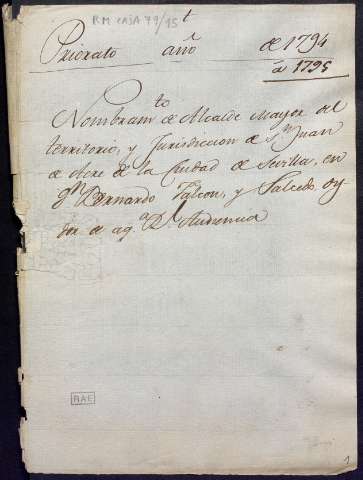 RM CAJA 79/15
t
Priorato año de 1794
á 1795
Nombramto de Alcalde Mayor del
territorio, y Jurisdiccion de Sn Juan
de Acre de la Ciudad de Sevilla, en
Dn Bernardo Falcon, y Salcedo, oy
dor de aqa Rl Audiencia
RAE
1